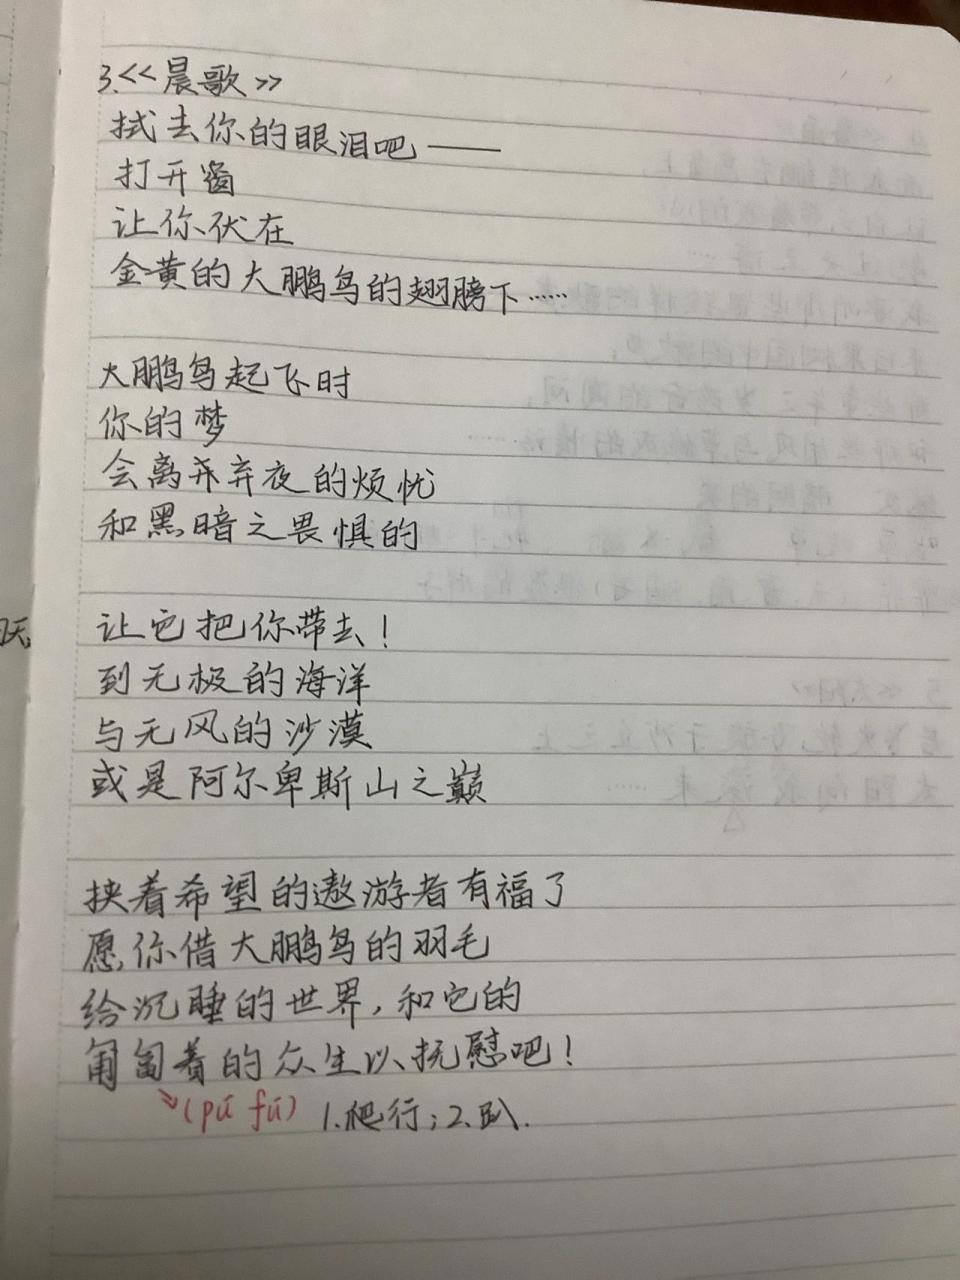 3.<<晨歌>>
拭去你的眼泪吧——
打开窗
让你伏在
金黄的大鹏鸟的翅膀下……
大鹏鸟起飞时
你的梦
会离弃弃夜的烦忧
和黑暗之畏惧的
让它把你带去!
到无极的海洋
与无风的沙漠
或是阿尔卑斯山之巅
挟着希望的遨游者有福了
愿你借大鹏鸟的羽毛
给沉睡的世界,和它的
匍匐着的众生以抚慰吧!
(pú fú) 1.爬行;2.趴.